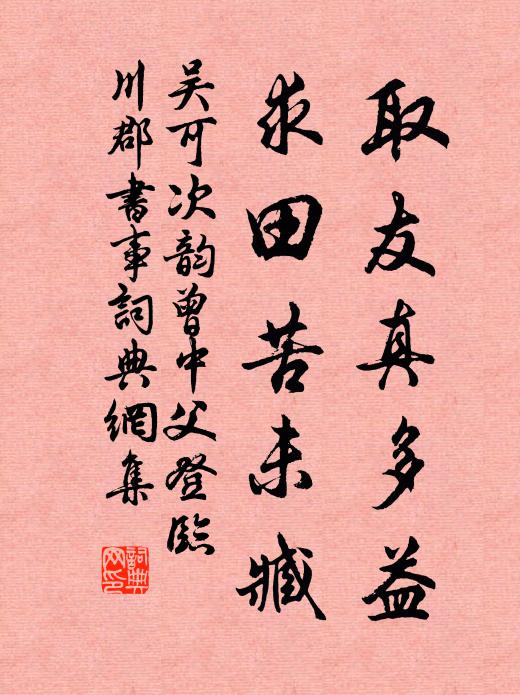 取友真多益
求田苦未臧
吴可次韵曾中父登臨
川郡書事詞典網集
詞典网印